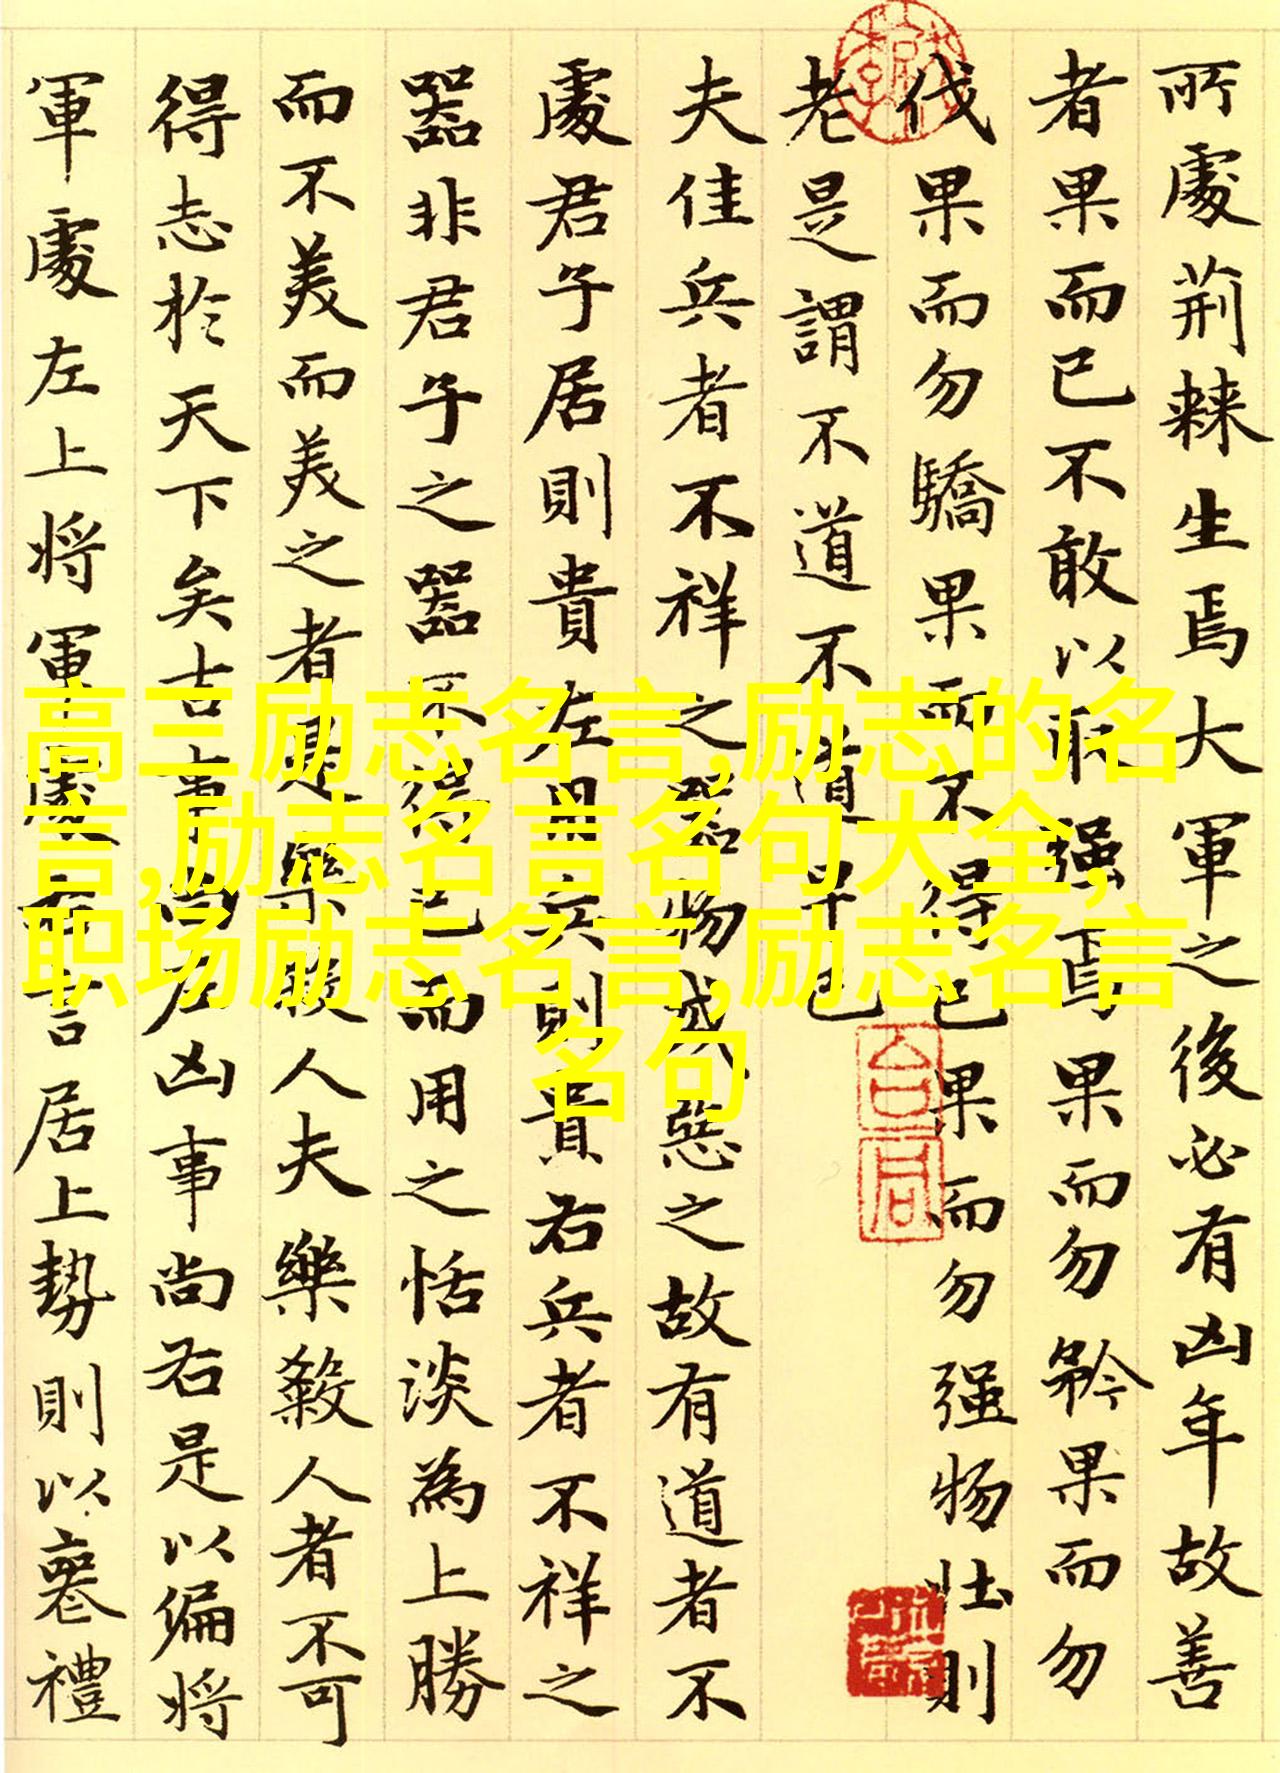 所處荊棘生焉大軍之後必有凶年故善
者果而已不敢以取强焉果而勿矜果而勿
伐果而勿驕果而不得已果而勿强物壮則
老是謂不道不道早已
夫佳兵者不祥之器物或惡之故有道者不
處君子居則貴左用兵則貴右兵者不祥之
器非君子之器不得已而用之恬淡為上勝
而不美而美之者是樂殺人夫樂殺人者不可
得志於天下矣吉事尚左凶事尚右是以偏將
軍處左上將軍處右言居上勢則以喪禮
高三励志名言,励志的名
言,励志名言名句大全,
职场励志名言,励志名言
名句